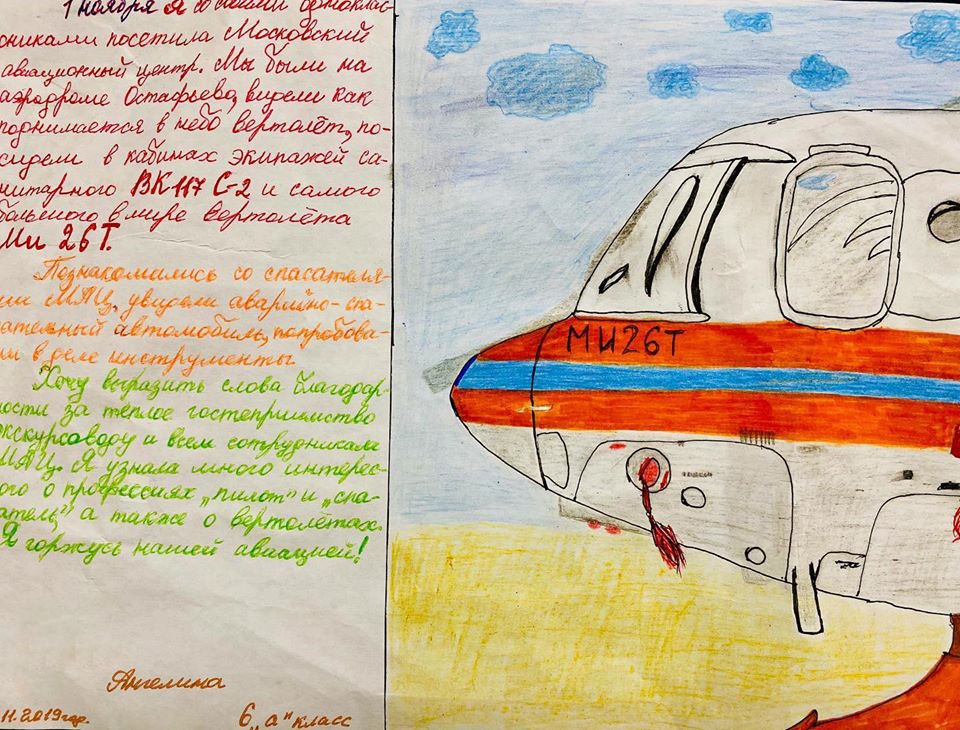 1 ноября я со своими однокласс
сниками посетила Московский
авиационный центр. Мы были на
аэродроме Остафьево, видели как
поднимается в небо вертолёт, по-
сидели в кабинах экипажей са-
нитарного ВК 117 С-2 и самого
большого в мире вертолёта
Ми 26Т.
Познакомились со спасателя-
ми МАЦ, увидели аварийно-спа-
сательный автомобиль, попробова-
ли в деле инструменты
Хочу выразить слова благодар-
ности за тёплое гостеприимство
экскурсоводу и всем сотрудникам
МАЦ. Я узнала много интерес-
ного о профессиях „пилот" и „спа-
сатель", а также о вертолётах.
Я горжусь нашей авиацией!
Ангелина
11.2019 год.
6 „а" класс
МИ26Т